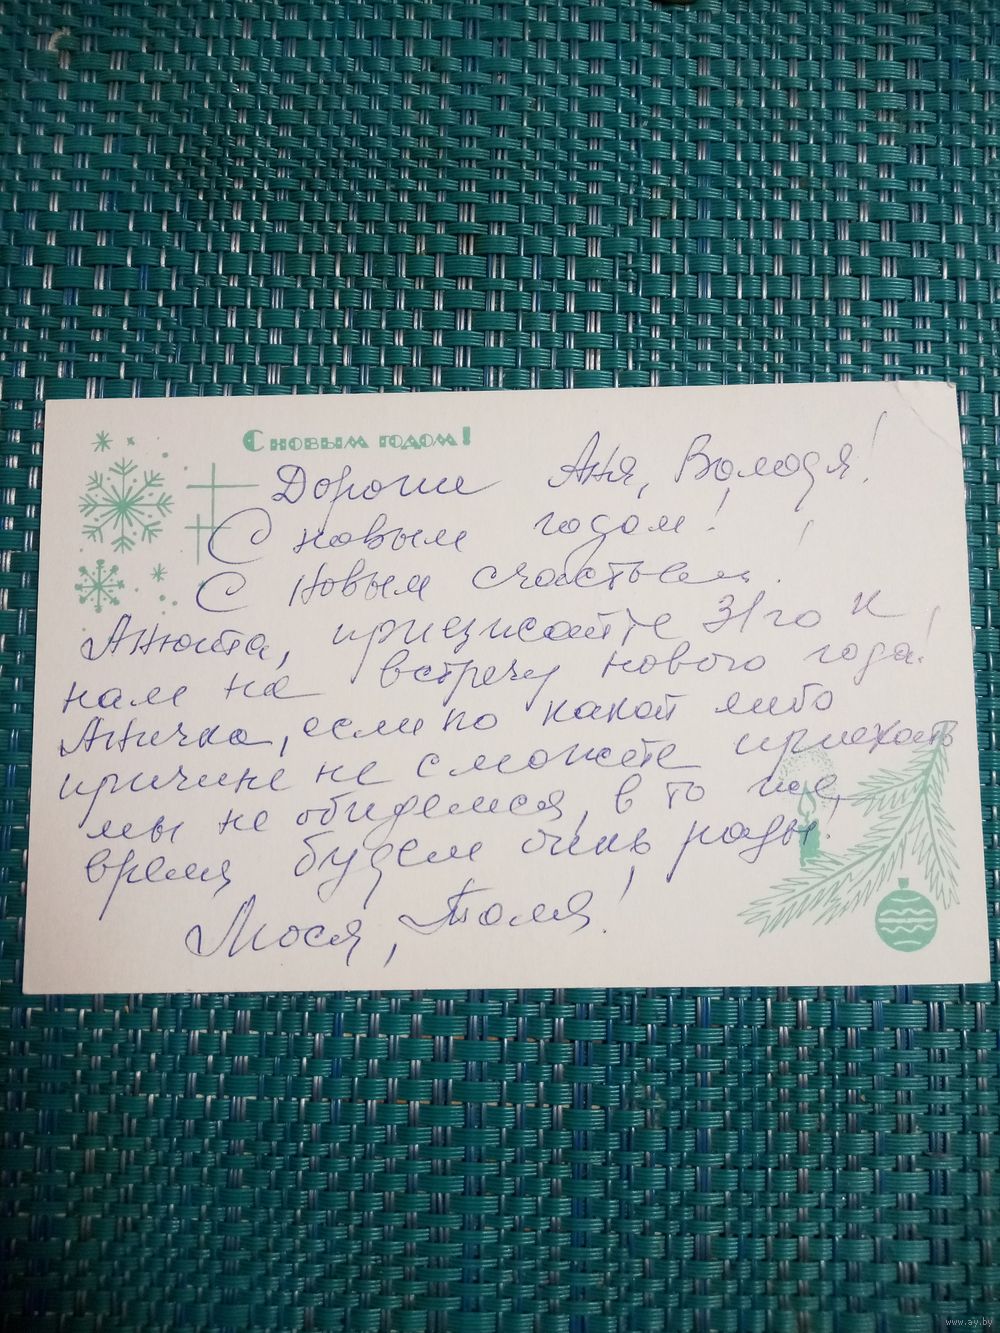 С новым годом!
Дорогие Аня, Володя!
С новым годом!
С новым счастьем!
Анюта, приезжайте 31го к
нам на встречу нового года!
Анечка, если по какой либо
причине не сможете приехать
мы не обидемся, в то же
время будем очень рады!
Люся, Толя!
www.ay.by